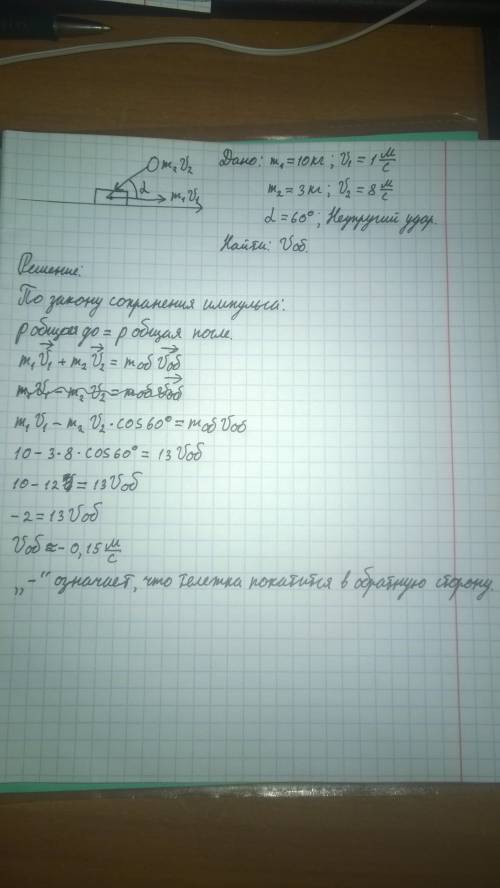 m₂V₂
α
m₁V₁
Дано: m₁ = 10 кг ; V₁ = 1 м/с
m₂ = 3 кг ; V₂ = 8 м/с
α = 60° ; Неупругий удар.
Найти: Vоб.
Решение:
По закону сохранения импульса:
р общая до = р общая после.
m₁V⃗₁ + m₂V⃗₂ = mоб V⃗об
m₁V₁ - m₂V₂ = mоб V⃗об
m₁V₁ - m₂V₂ · cos60° = mоб Vоб
10 - 3 · 8 · cos60° = 13Vоб
10 - 12 = 13Vоб
-2 = 13Vоб
Vоб ≈ - 0,15 м/с
„-“ означает, что тележка покатится в обратную сторону.